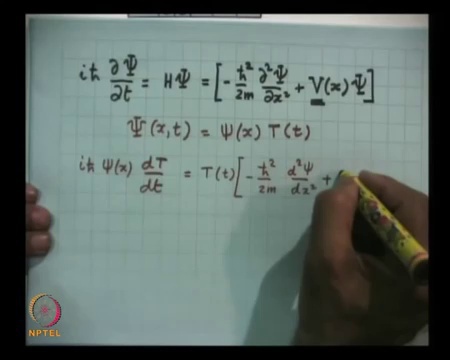 iħ ∂Ψ/∂t = HΨ = [-ħ²/2m ∂²Ψ/∂x² + V(x)Ψ]
Ψ(x,t) = ψ(x) T(t)
iħ ψ(x) dT/dt = T(t)[-ħ²/2m d²ψ/dx² +
NPTEL